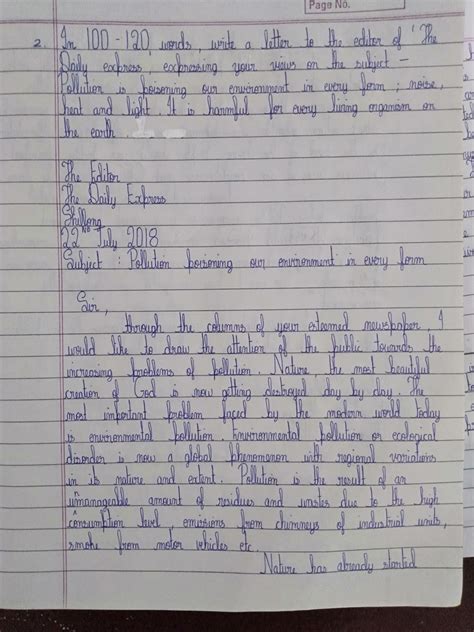 Page No.
2. In 100 - 120 words, write a letter to the editor of 'The
Daily express' expressing your views on the subject -
Pollution is poisoning our environment in every form ; noise,
heat and light. It is harmful for every living organism on
the earth.
The Editor
The Daily Express
Shillong
22nd July 2018
Subject : Pollution poisoning our environment in every form
Sir,
through the columns of your esteemed newspaper, I
would like to draw the attention of the public towards the
increasing problems of pollution. Nature, the most beautiful
creation of God is now getting destroyed day by day. The
most important problem faced by the modern world today
is environmental pollution. Environmental pollution or ecological
disorder is now a global phenomenon with regional variations
in its nature and extent. Pollution is the result of an
unmanageable amount of residues and wastes due to the high
consumption level, emissions from chimneys of industrial units,
smoke from motor vehicles etc.
Nature has already started